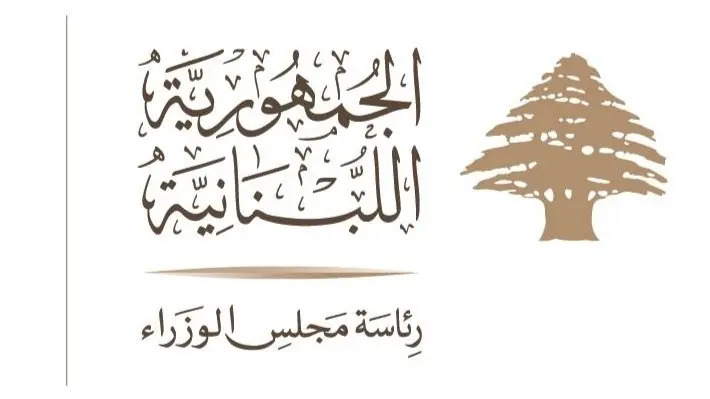 الجُمهُورِيَّة
اللُّبنَانِيَّة
رِئاسَة مَجلِس الوَزَراء